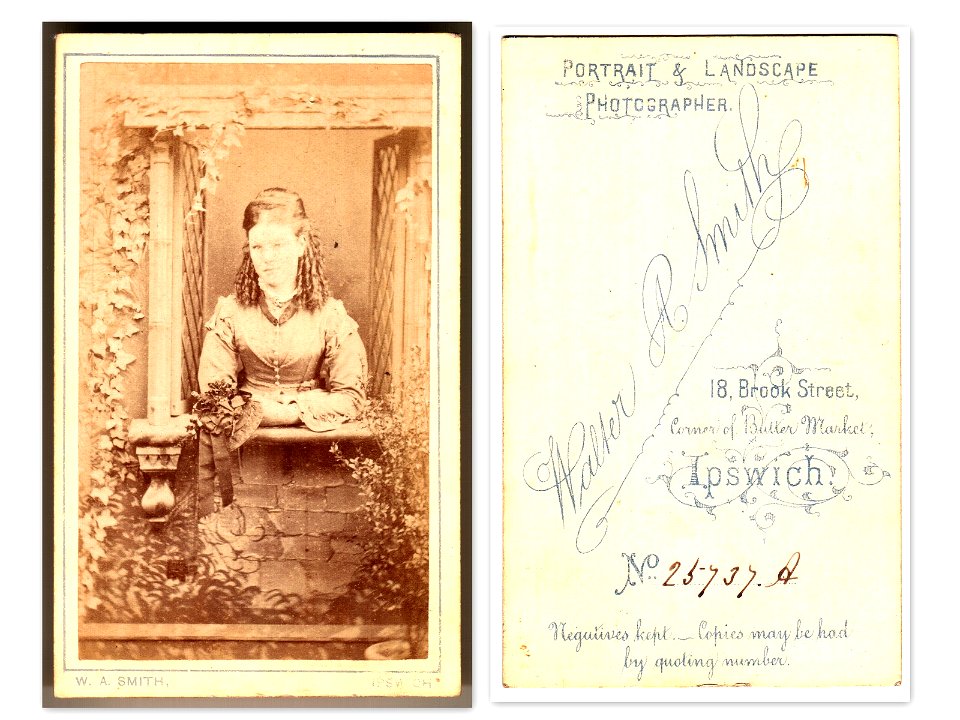 W. A. SMITH. IPSWICH
PORTRAIT & LANDSCAPE
PHOTOGRAPHER.
Walter A Smith
18, Brook Street,
Corner of Butter Market,
Ipswich.
No. 25737. A
Negatives kept. _ Copies may be had
by quoting number.